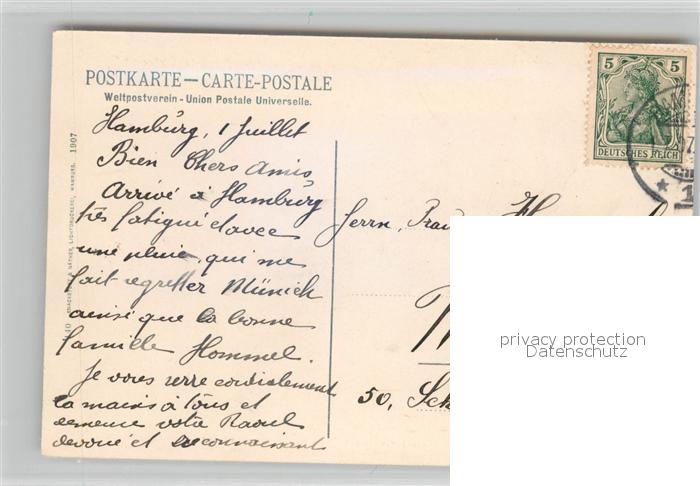 POSTKARTE — CARTE-POSTALE
Weltpostverein - Union Postale Universelle.
Hamburg, 1 Juillet
Bien Chers Amis,
Arrivé à Hamburg
très fatigué et avec
une pluie, qui me
fait regretter Münich
ainsi que la bonne
famille Hommel.
Je vous serre cordialement
la mains à tous et
demeure votre Raoul
devoué et reconnaissant
Herrn,
50, Sch
5 5
DEUTSCHES REICH
HAMBURG. 1907
privacy protection
Datenschutz